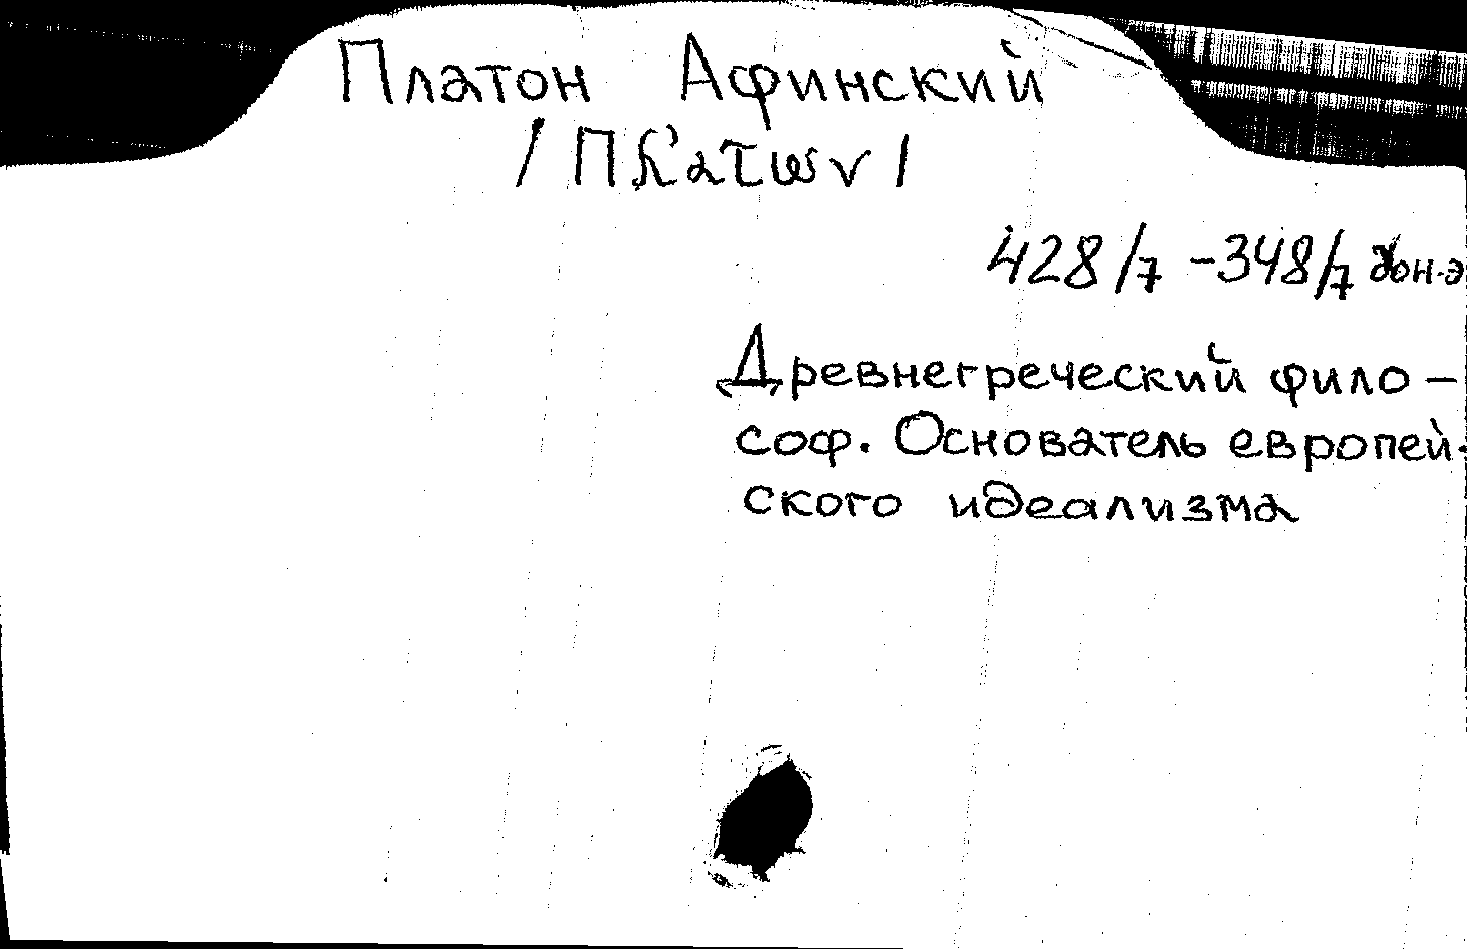 Платон Афинский
/Πλατων/
428/7 - 348/7 до н.э
Древнегреческий фило-
соф. Основатель европей-
ского идеализма